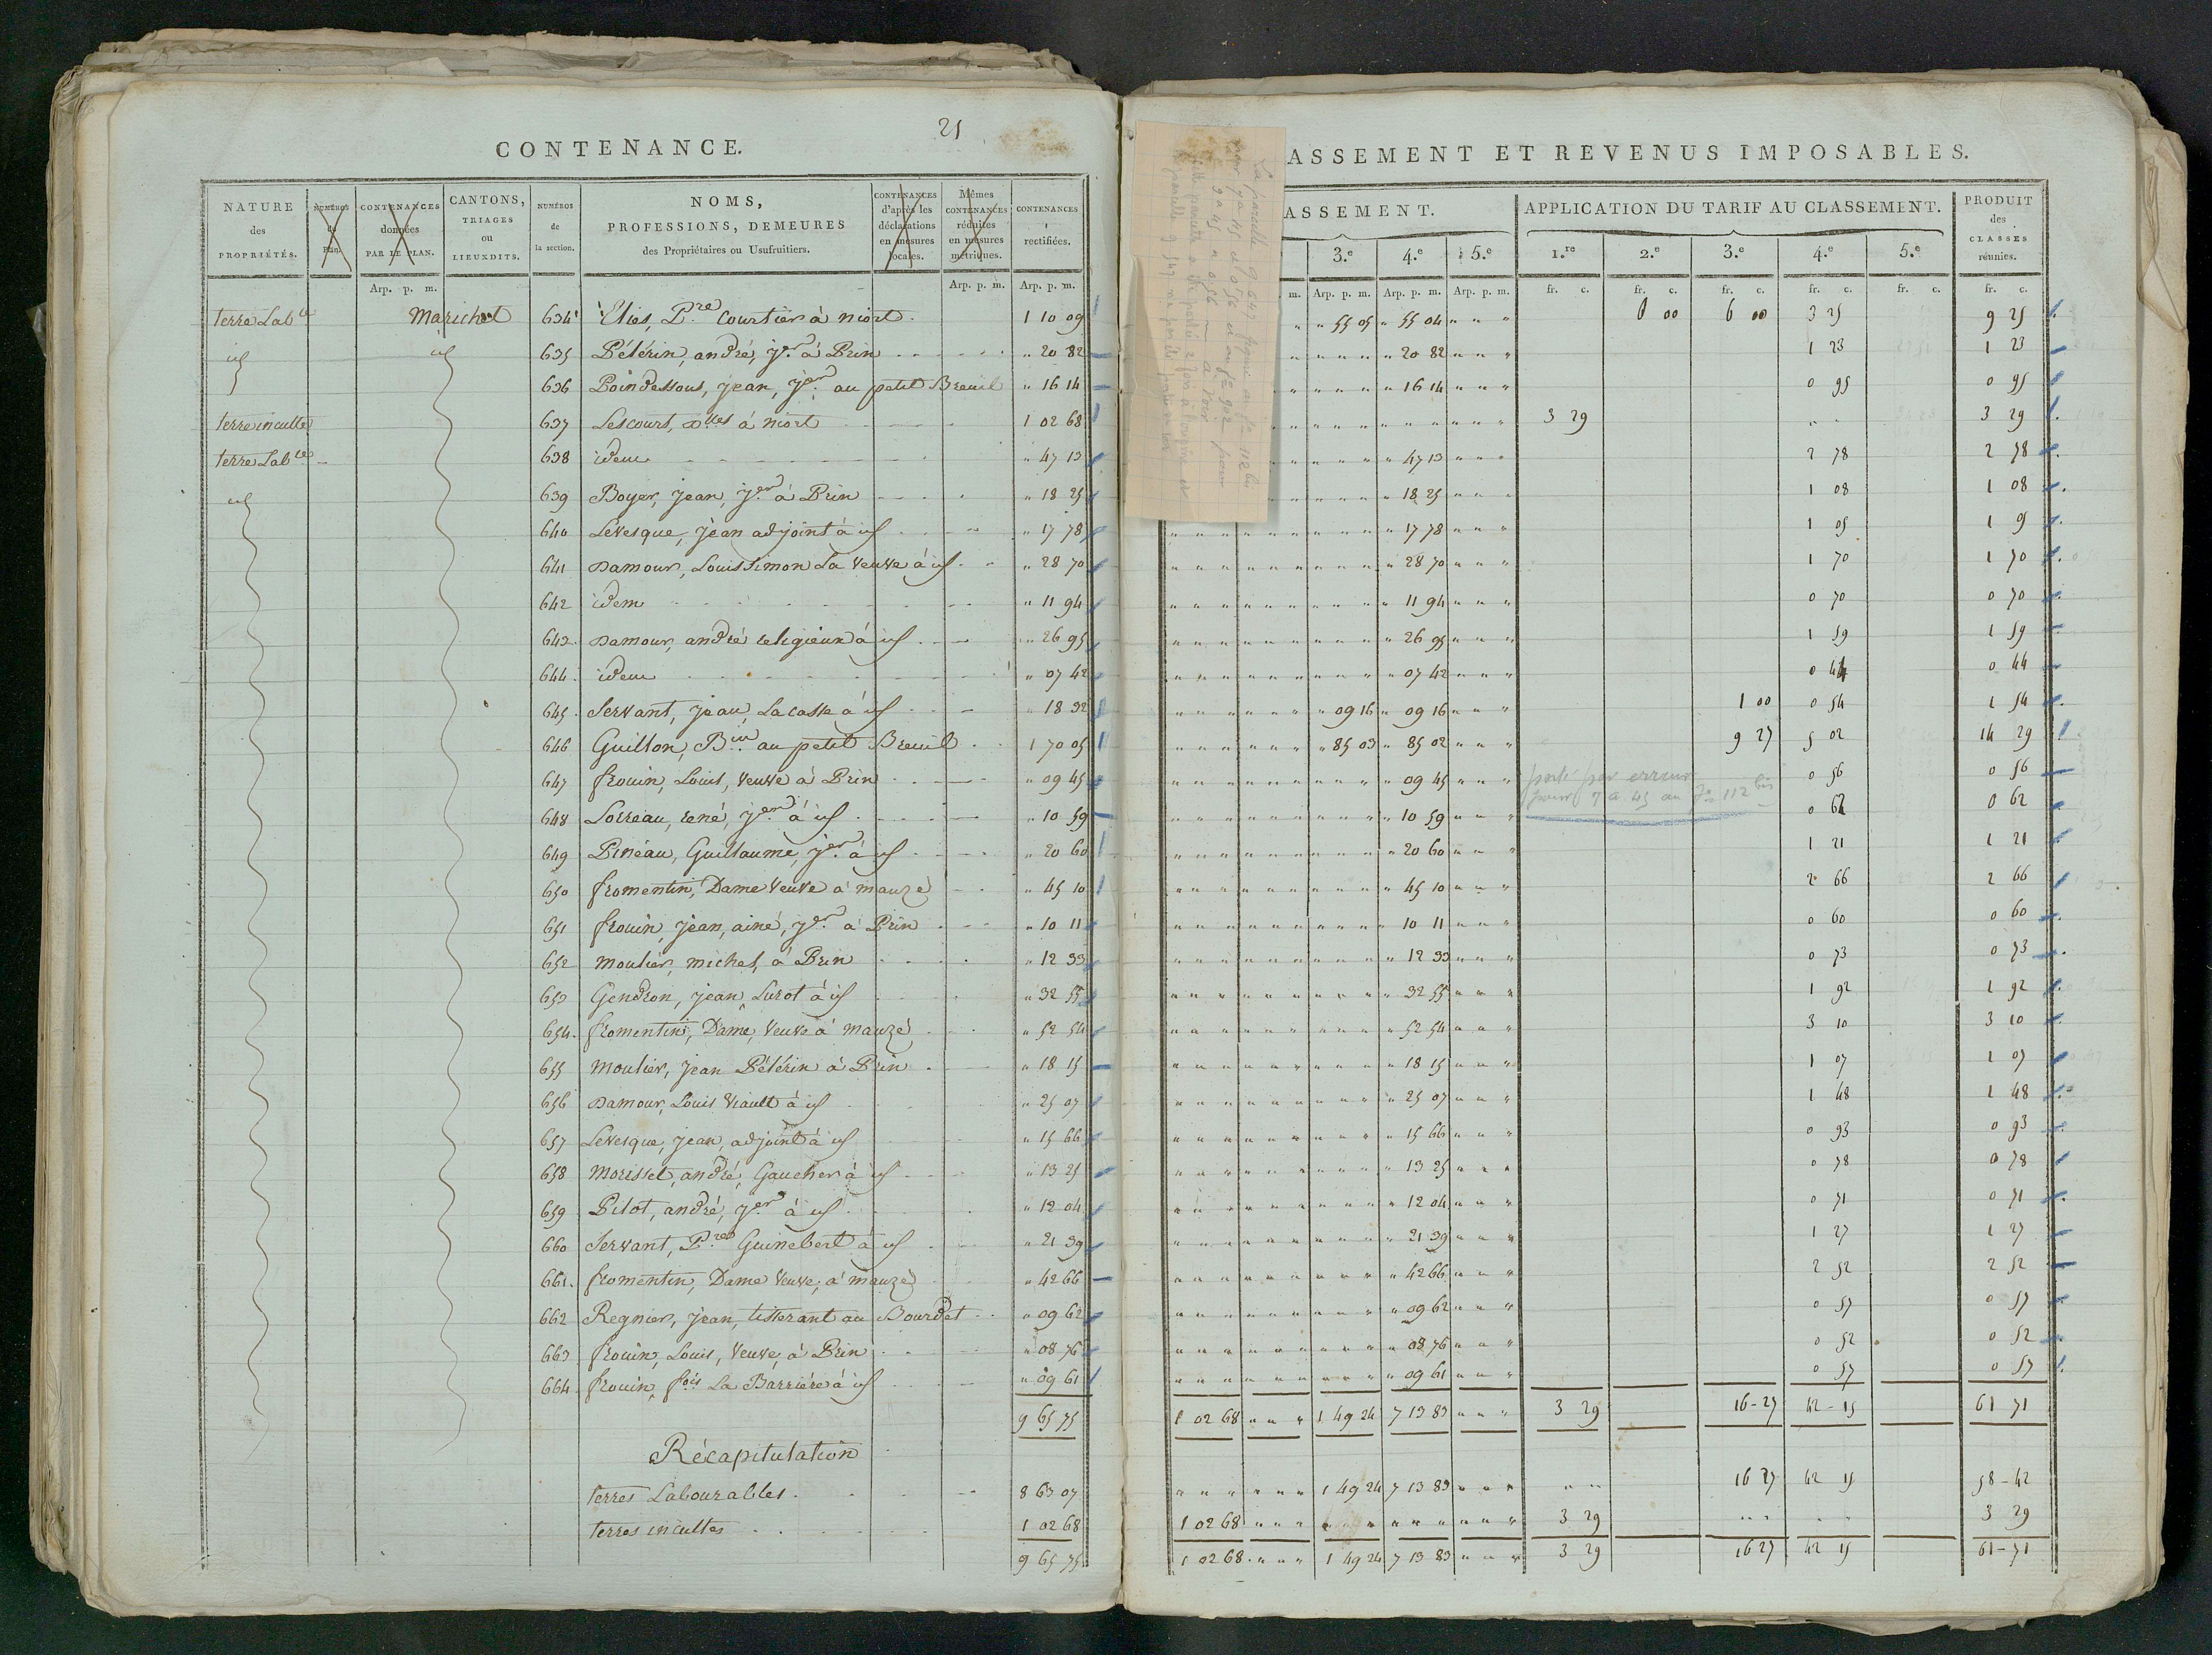 21
CONTENANCE.
NATURE des PROPRIÉTÉS. | NUMÉROS du Plan. | CONTENANCES données PAR LE PLAN. | CANTONS, TRIAGES ou LIEUXDITS. | NUMÉROS de la section. | NOMS, PROFESSIONS, DEMEURES des Propriétaires ou Usufruitiers. | CONTENANCES d'après les déclarations en mesures locales. | Mêmes CONTENANCES réduites en mesures métriques. | CONTENANCES rectifiées.
Arp. p. m. Arp. p. m. Arp. p. m.
terre Lab.le Marichet 634 Elies, P.re Courtier à niort 1 10 09
id id 635 Pélérin, andré, j.er à Brin " 20 82
636 Poindessous, jean, j.er au petit Breuil " 16 14
terre inculte 637 Lescourt, D.lles à niort 1 02 68
terre Lab.le 638 idem " 47 13
id 639 Boyer, jean, j.er à Brin " 18 25
640 Lévesque, jean adjoint à id " 17 78
641 Damour, Louis Simon La Veuve à id " 28 70
642 idem " 11 94
643 Damour, andré religieux à id " 26 95
644 idem " 07 42
645 Servant, jean, Lacasse à id " 18 32
646 Guillon, B.in au petit Breuil 1 70 05
647 frouin, Louis, Veuve à Brin " 09 45
648 Lorreau, rené, j.er à id " 10 59
649 Pineau, Guillaume, j.er à id " 20 60
650 fromentin, Dame Veuve à mauzé " 45 10
651 frouin, jean, ainé, j.er à Brin " 10 11
652 moulier, michel, à Brin " 12 33
653 Gendron, jean, Lurot à id " 32 55
654 fromentin, Dame, Veuve à mauzé " 52 54
655 moulier, jean Pélérin à Brin " 18 15
656 Damour, Louis Viault à id " 25 07
657 Levesque, jean, adjoint à id " 15 66
658 morisset, andré, Gaucher à id " 13 25
659 Pilot, andré, j.er à id " 12 04
660 Servant, P.re Guinebert à id " 21 39
661 fromentin, Dame Veuve, à mauzé " 42 66
662 Regnier, jean, tisserant au Bourdet " 09 62
663 frouin, Louis, Veuve, à Brin " 08 76
664 frouin, f.ois La Barrière à id " 09 61
9 65 75
Récapitulation
terres Labourables 8 63 07
terres incultes 1 02 68
9 65 75
ASSEMENT ET REVENUS IMPOSABLES.
ASSEMENT. | APPLICATION DU TARIF AU CLASSEMENT. | PRODUIT des CLASSES réunies.
3.e 4.e 5.e 1.re 2.e 3.e 4.e 5.e
m. Arp. p. m. Arp. p. m. Arp. p. m. fr. c. fr. c. fr. c. fr. c. fr. c. fr. c.
" 55 05 " 55 04 " " " 0 00 6 00 3 25 9 25
" 20 82 " " " 1 23 1 23
" 16 14 " " " 0 95 0 95
" " " 3 29 " " 3 29
" 47 13 " " " 2 78 2 78
" 18 25 " " " 1 08 1 08
" 17 78 " " " 1 05 1 9
" 28 70 " " " 1 70 1 70
" 11 94 " " " 0 70 0 70
" 26 95 " " " 1 59 1 59
" 07 42 " " " 0 44 0 44
" 09 16 " 09 16 " " " 1 00 0 54 1 54
" 85 03 " 85 02 " " " 9 27 5 02 14 29
" 09 45 " " " 0 56 0 56
porté par erreur
pour 7 a 45 au f.o 112 bis
" 10 59 " " " 0 62 0 62
" 20 60 " " " 1 21 1 21
" 45 10 " " " 2 66 2 66
" 10 11 " " " 0 60 0 60
" 12 33 " " " 0 73 0 73
" 32 55 " " " 1 92 1 92
" 52 54 " " " 3 10 3 10
" 18 15 " " " 1 07 1 07
" 25 07 " " " 1 48 1 48
" 15 66 " " " 0 93 0 93
" 13 25 " " " 0 78 0 78
" 12 04 " " " 0 71 0 71
" 21 39 " " " 1 27 1 27
" 42 66 " " " 2 52 2 52
" 09 62 " " " 0 57 0 57
" 08 76 " " " 0 52 0 52
" 09 61 " " " 0 57 0 57
1 02 68 " " " 1 49 24 7 13 83 " " " 3 29 16-27 42-15 61 71
" " " " " " 1 49 24 7 13 83 " " " " " 16 27 42 15 58-42
1 02 68 " " " " " " " " " " " " 3 29 " " " " 3 29
1 02 68 " " " 1 49 24 7 13 83 " " " 3 29 16 27 42 15 61-71
La parcelle g 647 figure au f.o 112 bis
pour 7 a 45 et 0 56 et au f.o 902 pour
9 a 45 " 0 56